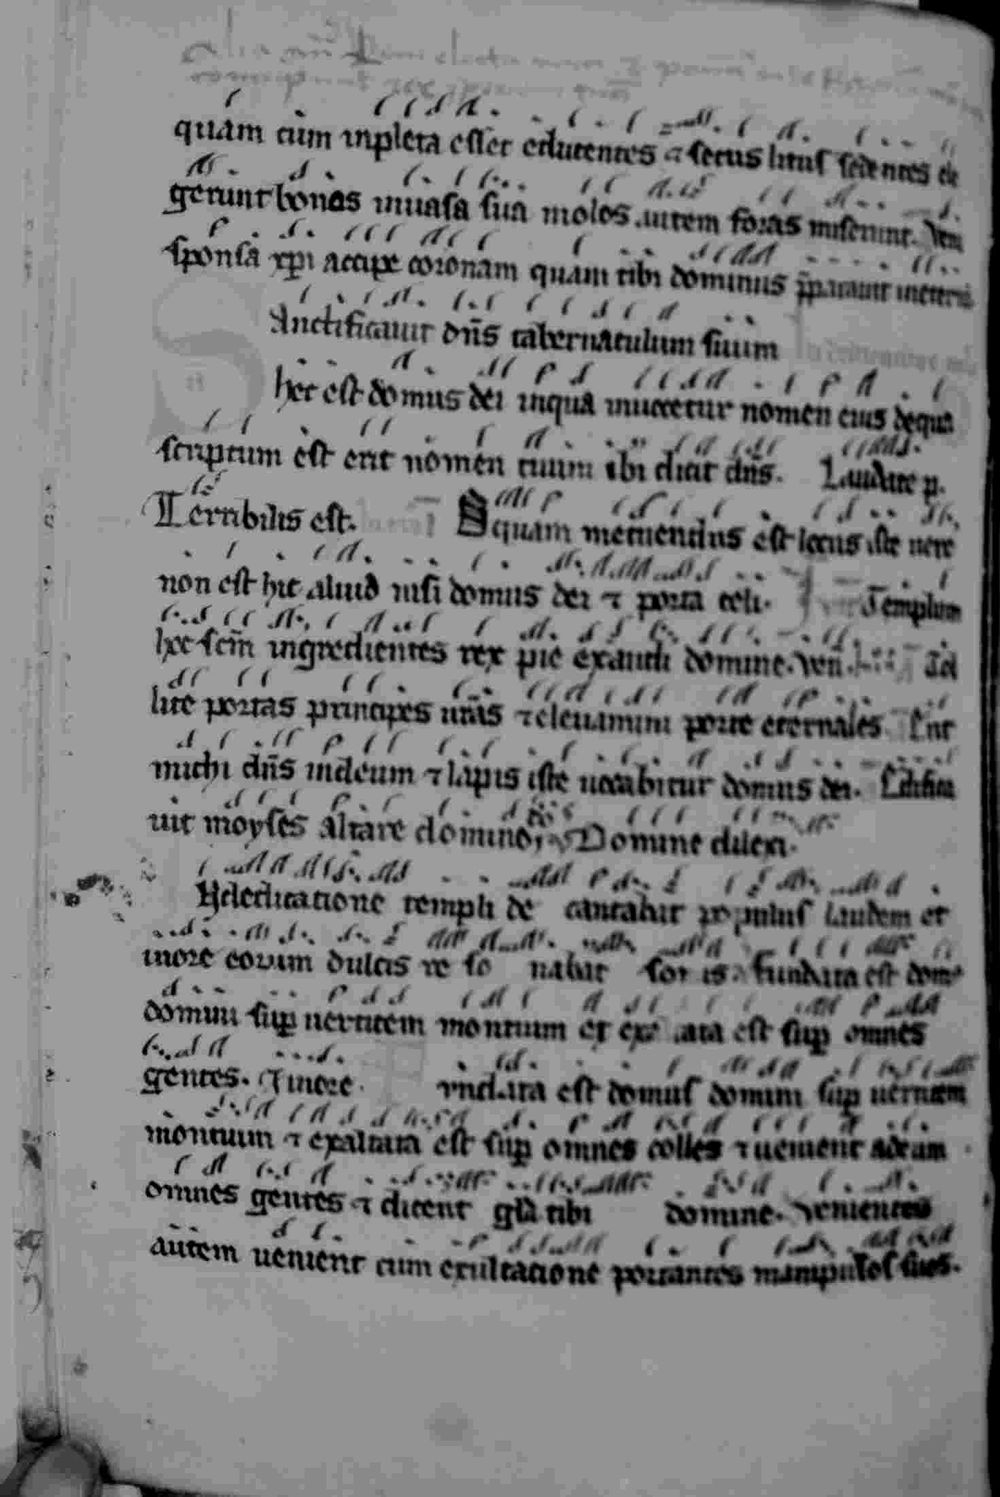 quam cum inpleta esset educentes ⁊ secus litus sedentes ele
gerunt bonas in uasa sua malos autem foras miserunt. Veni
sponsa xp̄i accipe coronam quam tibi dominus p̄parauit in eternū
Sanctificauit dn̄s tabernaculum suum
hec est domus dei in qua inuocetur nomen eius de qua
scriptum est erit nomen tuum ibi dicit dn̄s. Laudate p.
Terribilis est. O quam metuendus est locus iste uere
non est hic aliud nisi domus dei ⁊ porta celi. Templum
hoc sc̄m ingredientes rex pie exaudi domine. Tol
lite portas principes ur̄as ⁊ eleuamini porte eternales Erit
michi dn̄s in deum ⁊ lapis iste uocabitur domus dei. Edifica
uit moyses altare domino. Domine dilexi.
In dedicatione templi de cantabat populus laudem et
in ore eorum dulcis re so nabat so nus. Fundata est domus
domini sup uerticem montium et exal tata est sup omnes
gentes. Et in ore. undata est domus domini sup uerticem
montium ⁊ exaltata est sup omnes colles ⁊ uenient ad eam
omnes gentes ⁊ dicent gl̄a tibi domine. Venientes
autem uenient cum exultatione portantes manipulos suos.